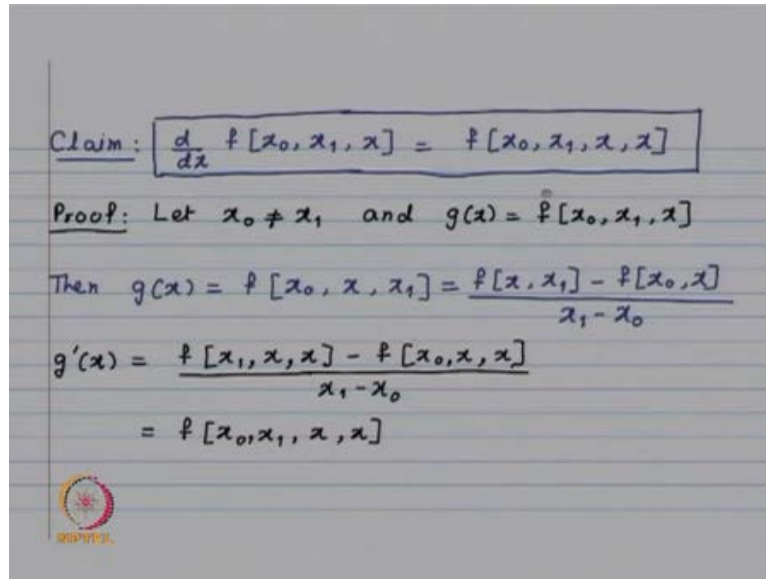 Claim: d/dx f[x₀, x₁, x] = f[x₀, x₁, x, x]
Proof: Let x₀ ≠ x₁ and g(x) = f[x₀, x₁, x]
Then g(x) = f[x₀, x, x₁] = (f[x, x₁] - f[x₀, x]) / (x₁ - x₀)
g'(x) = (f[x₁, x, x] - f[x₀, x, x]) / (x₁ - x₀)
= f[x₀, x₁, x, x]
NPTEL